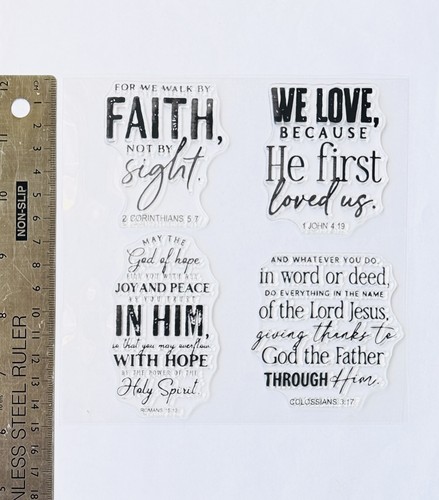 FOR WE WALK BY
FAITH,
NOT BY
sight.
2 CORINTHIANS 5:7
WE LOVE,
BECAUSE
He first
loved us.
1 JOHN 4:19
MAY THE
God of hope
FILL YOU WITH ALL
JOY AND PEACE
AS YOU TRUST
IN HIM,
so that you may overflow
WITH HOPE
BY THE POWER OF THE
Holy Spirit.
ROMANS 15:13
AND WHATEVER YOU DO,
in word or deed,
DO EVERYTHING IN THE NAME
of the Lord Jesus,
giving thanks to
God the Father
THROUGH Him.
COLOSSIANS 3:17
CM 1 2 3 4 5 6 7 8 9 10 11 12 13 14 15 16 17 18
12
10
NON-SLIP
NLESS STEEL RULER